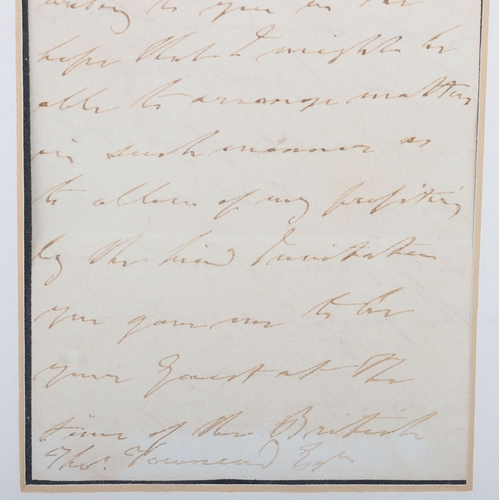 writing to you in the
hope that I might be
able to arrange matters
in such manner as
to allow of my profiting
by the kind Invitation
you gave me to be
your Guest at the
time of the British
Thos. Townsend Esqr